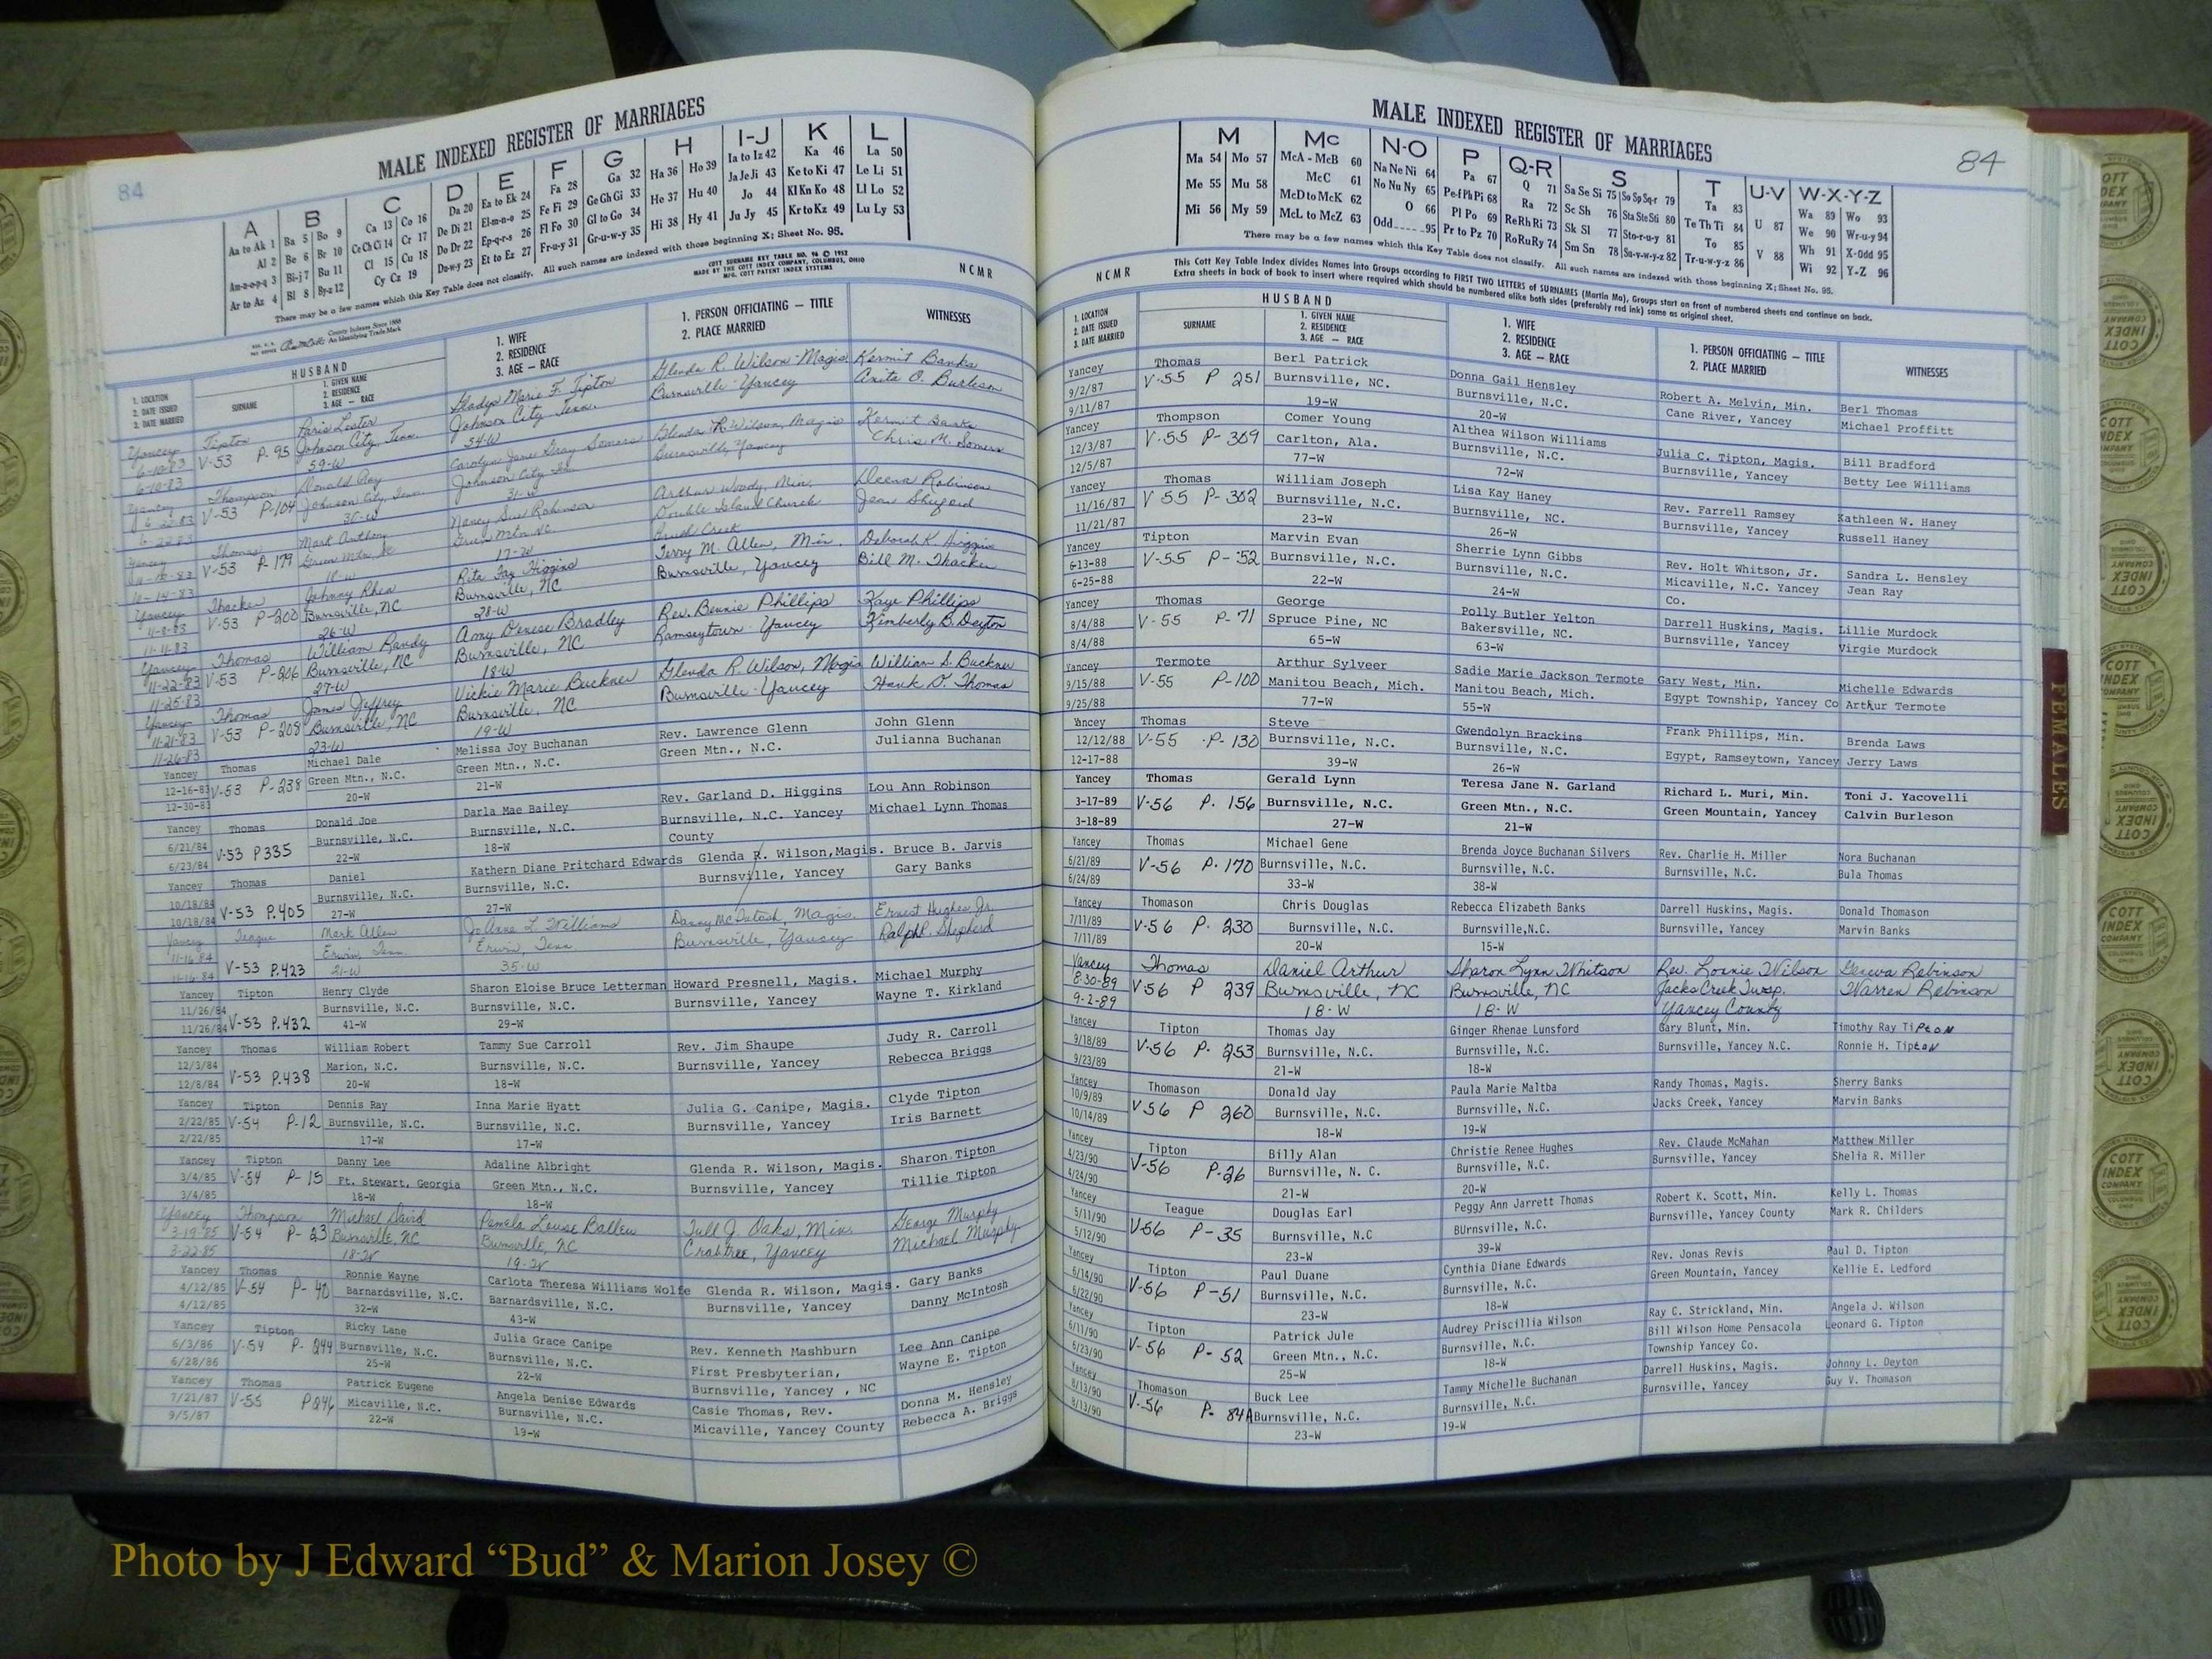 84
MALE INDEXED REGISTER OF MARRIAGES
A B C D E F G H I-J K L
Aa to Ak 1 Ba 5 Bo 9 Ca 13 Co 16 Da 20 Ea to Ek 24 Fa 28 Ga 32 Ha 36 Ho 39 Ia to Iz 42 Ka 46 La 50
Al 2 Be 6 Br 10 Ce Ch Ci 14 Cr 17 De Di 21 El-m-n-o 25 Fe Fi 29 Ge Gh Gi 33 He 37 Hu 40 Ja Je Ji 43 Ke to Ki 47 Le Li 51
An-z-o-p-q 3 Bi-j 7 Bu 11 Cl 15 Cu 18 Do Dr 22 Ep-q-r-s 26 Fl Fo 30 Gl to Go 34 Hi 38 Hy 41 Jo 44 Kl Kn Ko 48 Ll Lo 52
Ar to Az 4 Bl 8 By-z 12 Cy Cz 19 Du-w-y 23 Et to Ez 27 Fr-u-y 31 Gr-u-w-y 35 Ju Jy 45 Kr to Kz 49 Lu Ly 53
There may be a few names which this Key Table does not classify. All such names are indexed with those beginning X; Sheet No. 95.
COTT SURNAME KEY TABLE NO. 96 © 1952
MADE BY THE COTT INDEX COMPANY, COLUMBUS, OHIO
MFG. COTT PATENT INDEX SYSTEMS
NCMR
County Indexes Since 1888
An Identifying Trade Mark
1. LOCATION
2. DATE ISSUED
3. DATE MARRIED
HUSBAND
SURNAME
1. GIVEN NAME
2. RESIDENCE
3. AGE — RACE
1. WIFE
2. RESIDENCE
3. AGE — RACE
1. PERSON OFFICIATING — TITLE
2. PLACE MARRIED
WITNESSES
Yancey Tipton Paris Lester Gladys Marie F. Tipton Glenda R. Wilson-Magis. Kermit Banks
6-10-83 V-53 P. 95 Johnson City, Tenn. Johnson City, Tenn. Burnsville-Yancey Anita O. Burleson
6-10-83 59-W 34-W
Yancey Thompson Donald Ray Carolyn Jane Gray Somers Glenda R. Wilson, Magis Kermit Banks
6-22-83 V-53 P-104 Johnson City, Tenn. Johnson City, Tenn Burnsville, Yancey Chris M. Somers
6-22-83 30-W 31-W
Yancey Thomas Mark Anthony Nancy Sue Robinson Arthur Woody, Min. Deena Robinson
V-53 P-179 Green Mtn, NC Green Mtn. NC Double Island Church Jean Shuford
10-14-83 18-W 17-W Brush Creek
Yancey Thacker Johnny Rhea Rita Fay Higgins Terry M. Allen, Min. Deborah K. Higgins
11-8-83 V-53 P-200 Burnsville, NC Burnsville, NC Burnsville, Yancey Bill M. Thacker
11-11-83 26-W 28-W
Yancey Thomas William Randy Amy Denese Bradley Rev. Bennie Phillips Kaye Phillips
11-22-83 V-53 P-206 Burnsville, NC Burnsville, NC Ramseytown-Yancey Kimberly B. Deyton
11-25-83 27-W 18-W
Yancey Thomas James Jeffrey Vickie Marie Buckner Glenda R. Wilson, Magis William S. Buckner
11-21-83 V-53 P-208 Burnsville, NC Burnsville, NC Burnsville-Yancey Hank D. Thomas
11-26-83 23-W 19-W
Yancey Thomas Michael Dale Melissa Joy Buchanan Rev. Lawrence Glenn John Glenn
12-16-83 V-53 P-238 Green Mtn., N.C. Green Mtn., N.C. Green Mtn., N.C. Julianna Buchanan
12-30-83 20-W 21-W
Yancey Thomas Donald Joe Darla Mae Bailey Rev. Garland D. Higgins Lou Ann Robinson
6/21/84 V-53 P335 Burnsville, N.C. Burnsville, N.C. Burnsville, N.C. Yancey Michael Lynn Thomas
6/23/84 22-W 18-W County
Yancey Thomas Daniel Kathern Diane Pritchard Edwards Glenda R. Wilson,Magis. Bruce B. Jarvis
10/18/84 V-53 P.405 Burnsville, N.C. Burnsville, N.C. Burnsville, Yancey Gary Banks
10/18/84 27-W 27-W
Yancey Teague Mark Allen Jo Anne L. Williams Danny McIntosh, Magis. Ernest Hughes, Jr.
11-16-84 V-53 P.423 Erwin, Tenn Erwin, Tenn Burnsville, Yancey Ralph Shepherd
11-16-84 21-W 35-W
Yancey Tipton Henry Clyde Sharon Eloise Bruce Letterman Howard Presnell, Magis. Michael Murphy
11/26/84 V-53 P.432 Burnsville, N.C. Burnsville, N.C. Burnsville, Yancey Wayne T. Kirkland
11/26/84 41-W 29-W
Yancey Thomas William Robert Tammy Sue Carroll Rev. Jim Shaupe Judy R. Carroll
12/3/84 V-53 P.438 Marion, N.C. Burnsville, N.C. Burnsville, Yancey Rebecca Briggs
12/8/84 20-W 18-W
Yancey Tipton Dennis Ray Inna Marie Hyatt Julia G. Canipe, Magis. Clyde Tipton
2/22/85 V-54 P-12 Burnsville, N.C. Burnsville, N.C. Burnsville, Yancey Iris Barnett
2/22/85 17-W 17-W
Yancey Tipton Danny Lee Adaline Albright Glenda R. Wilson, Magis. Sharon Tipton
3/4/85 V-54 P-15 Ft. Stewart, Georgia Green Mtn., N.C. Burnsville, Yancey Tillie Tipton
3/4/85 18-W 18-W
Yancey Thompson Michael David Pamela Louise Ballew Tull J. Oaks, Min. George Murphy
3-19-85 V-54 P-23 Burnsville, NC Burnsville, NC Crabtree, Yancey Michael Murphy
3-22-85 18-W 19-W
Yancey Thomas Ronnie Wayne Carlota Theresa Williams Wolfe Glenda R. Wilson, Magis. Gary Banks
4/12/85 V-54 P-40 Barnardsville, N.C. Barnardsville, N.C. Burnsville, Yancey Danny McIntosh
4/12/85 32-W 43-W
Yancey Tipton Ricky Lane Julia Grace Canipe Rev. Kenneth Mashburn Lee Ann Canipe
6/3/86 V-54 P-244 Burnsville, N.C. Burnsville, N.C. First Presbyterian, Wayne E. Tipton
6/28/86 25-W 22-W Burnsville, Yancey , NC
Yancey Thomas Patrick Eugene Angela Denise Edwards Casie Thomas, Rev. Donna M. Hensley
7/21/87 V-55 P246 Micaville, N.C. Burnsville, N.C. Micaville, Yancey County Rebecca A. Briggs
9/5/87 22-W 19-W
MALE INDEXED REGISTER OF MARRIAGES
84
M Mc N-O P Q-R S T U-V W-X-Y-Z
Ma 54 Mo 57 McA - McB 60 Na Ne Ni 64 Pa 67 Q 71 Sa Se Si 75 So Sp Sq-r 79 Ta 83 U 87 Wa 89 Wo 93
Me 55 Mu 58 McC 61 No Nu Ny 65 Pe-f Ph Pi 68 Ra 72 Sc Sh 76 Sta Ste Sti 80 Te Th Ti 84 We 90 Wr-u-y 94
Mi 56 My 59 McD to McK 62 O 66 Pl Po 69 Re Rh Ri 73 Sk Sl 77 Sto-r-u-y 81 To 85 V 88 Wh 91 X-Odd 95
McL to McZ 63 Odd 95 Pr to Pz 70 Ro Ru Ry 74 Sm Sn 78 Su-v-w-y-z 82 Tr-u-w-y-z 86 Wi 92 Y-Z 96
There may be a few names which this Key Table does not classify. All such names are indexed with those beginning X; Sheet No. 95.
NCMR
This Cott Key Table Index divides Names into Groups according to FIRST TWO LETTERS of SURNAMES (Martin Ma), Groups start on front of numbered sheets and continue on back.
Extra sheets in back of book to insert where required which should be numbered alike both sides (preferably red ink) same as original sheet.
1. LOCATION
2. DATE ISSUED
3. DATE MARRIED
HUSBAND
SURNAME
1. GIVEN NAME
2. RESIDENCE
3. AGE — RACE
1. WIFE
2. RESIDENCE
3. AGE — RACE
1. PERSON OFFICIATING — TITLE
2. PLACE MARRIED
WITNESSES
Yancey Thomas Berl Patrick Donna Gail Hensley Robert A. Melvin, Min. Berl Thomas
9/2/87 V-55 P 251 Burnsville, NC. Burnsville, N.C. Cane River, Yancey Michael Proffitt
9/11/87 19-W 20-W
Yancey Thompson Comer Young Althea Wilson Williams Julia C. Tipton, Magis. Bill Bradford
12/3/87 V-55 P-309 Carlton, Ala. Burnsville, N.C. Burnsville, Yancey Betty Lee Williams
12/5/87 77-W 72-W
Yancey Thomas William Joseph Lisa Kay Haney Rev. Farrell Ramsey Kathleen W. Haney
11/16/87 V 55 P-302 Burnsville, N.C. Burnsville, NC. Burnsville, Yancey Russell Haney
11/21/87 23-W 26-W
Yancey Tipton Marvin Evan Sherrie Lynn Gibbs Rev. Holt Whitson, Jr. Sandra L. Hensley
6-13-88 V-55 P-52 Burnsville, N.C. Burnsville, N.C. Micaville, N.C. Yancey Jean Ray
6-25-88 22-W 24-W Co.
Yancey Thomas George Polly Butler Yelton Darrell Huskins, Magis. Lillie Murdock
8/4/88 V-55 P-71 Spruce Pine, NC Bakersville, NC. Burnsville, Yancey Virgie Murdock
8/4/88 65-W 63-W
Yancey Termote Arthur Sylveer Sadie Marie Jackson Termote Gary West, Min. Michelle Edwards
9/15/88 V-55 P-100 Manitou Beach, Mich. Manitou Beach, Mich. Egypt Township, Yancey Co Arthur Termote
9/25/88 77-W 55-W
Yancey Thomas Steve Gwendolyn Brackins Frank Phillips, Min. Brenda Laws
12/12/88 V-55 P-130 Burnsville, N.C. Burnsville, N.C. Egypt, Ramseytown, Yancey Jerry Laws
12-17-88 39-W 26-W
Yancey Thomas Gerald Lynn Teresa Jane N. Garland Richard L. Muri, Min. Toni J. Yacovelli
3-17-89 V-56 P. 156 Burnsville, N.C. Green Mtn., N.C. Green Mountain, Yancey Calvin Burleson
3-18-89 27-W 21-W
Yancey Thomas Michael Gene Brenda Joyce Buchanan Silvers Rev. Charlie H. Miller Nora Buchanan
6/21/89 V-56 P. 170 Burnsville, N.C. Burnsville, N.C. Burnsville, N.C. Bula Thomas
6/24/89 33-W 38-W
Yancey Thomason Chris Douglas Rebecca Elizabeth Banks Darrell Huskins, Magis. Donald Thomason
7/11/89 V-56 P. 230 Burnsville, N.C. Burnsville,N.C. Burnsville, Yancey Marvin Banks
7/11/89 20-W 15-W
Yancey Thomas Daniel Arthur Sharon Lynn Whitson Rev. Lonnie Wilson Geneva Robinson
8-30-89 V-56 P 239 Burnsville, NC Burnsville, NC Jacks Creek Twsp. Warren Robinson
9-2-89 18-W 18-W Yancey County
Yancey Tipton Thomas Jay Ginger Rhenae Lunsford Gary Blunt, Min. Timothy Ray Tipton
9/18/89 V-56 P. 253 Burnsville, N.C. Burnsville, N.C. Burnsville, Yancey N.C. Ronnie H. Tipton
9/23/89 21-W 18-W
Yancey Thomason Donald Jay Paula Marie Maltba Randy Thomas, Magis. Sherry Banks
10/9/89 V 56 P 260 Burnsville, N.C. Burnsville, N.C. Jacks Creek, Yancey Marvin Banks
10/14/89 18-W 19-W
Yancey Tipton Billy Alan Christie Renee Hughes Rev. Claude McMahan Matthew Miller
4/23/90 V-56 P-26 Burnsville, N. C. Burnsville, N.C. Burnsville, Yancey Shelia R. Miller
4/24/90 21-W 20-W
Yancey Teague Douglas Earl Peggy Ann Jarrett Thomas Robert K. Scott, Min. Kelly L. Thomas
5/11/90 V-56 P-35 Burnsville, N.C BUrnsville, N.C. Burnsville, Yancey County Mark R. Childers
5/12/90 23-W 39-W
Yancey Tipton Paul Duane Cynthia Diane Edwards Rev. Jonas Revis Paul D. Tipton
6/14/90 V-56 P-51 Burnsville, N.C. Burnsville, N.C. Green Mountain, Yancey Kellie E. Ledford
6/22/90 23-W 18-W
Yancey Tipton Patrick Jule Audrey Priscillia Wilson Ray C. Strickland, Min. Angela J. Wilson
6/11/90 V-56 P-52 Green Mtn., N.C. Burnsville, N.C. Bill Wilson Home Pensacola Leonard G. Tipton
6/23/90 25-W 18-W Township Yancey Co.
Yancey Thomason Buck Lee Tammy Michelle Buchanan Darrell Huskins, Magis. Johnny L. Deyton
8/13/90 V-56 P-84A Burnsville, N.C. Burnsville, N.C. Burnsville, Yancey Guy V. Thomason
8/13/90 23-W 19-W
FEMALES
COTT INDEX COMPANY
Photo by J Edward “Bud” & Marion Josey ©